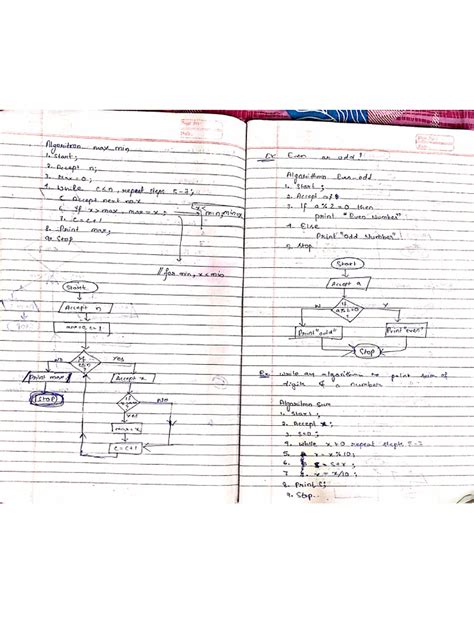 Algorithm max_min
1. Start;
2. Accept n;
3. max=0;
4. While c≤n, repeat steps 5-7;
5. Accept next max
6. if x>max, max=x;
7. c=c+1
8. Print max;
9. Stop
// for min, x<min
Start
Accept n
max=0, c=1
NO
Yes
Print max
Accept x
Stop
Yes
max=x
c=c+1
Ex: Even or odd?
Algorithm Even_odd
1. Start;
2. Accept
3. If a%2=0 then
print "Even Number"
4. Else
Print "odd Number"
5. Stop
Start
Accept a
N
Y
if a%2=0
Print "odd"
Print "even"
Stop
Ex: Write an algorithm to print sum of
digits of a number
Algorithm Sum
1. Start;
2. Accept x;
3. s=0;
4. While x>0 repeat steps 5-7
5. r=x%10;
6. s=s+r;
7. x=x/10;
8. Print s;
9. Stop.